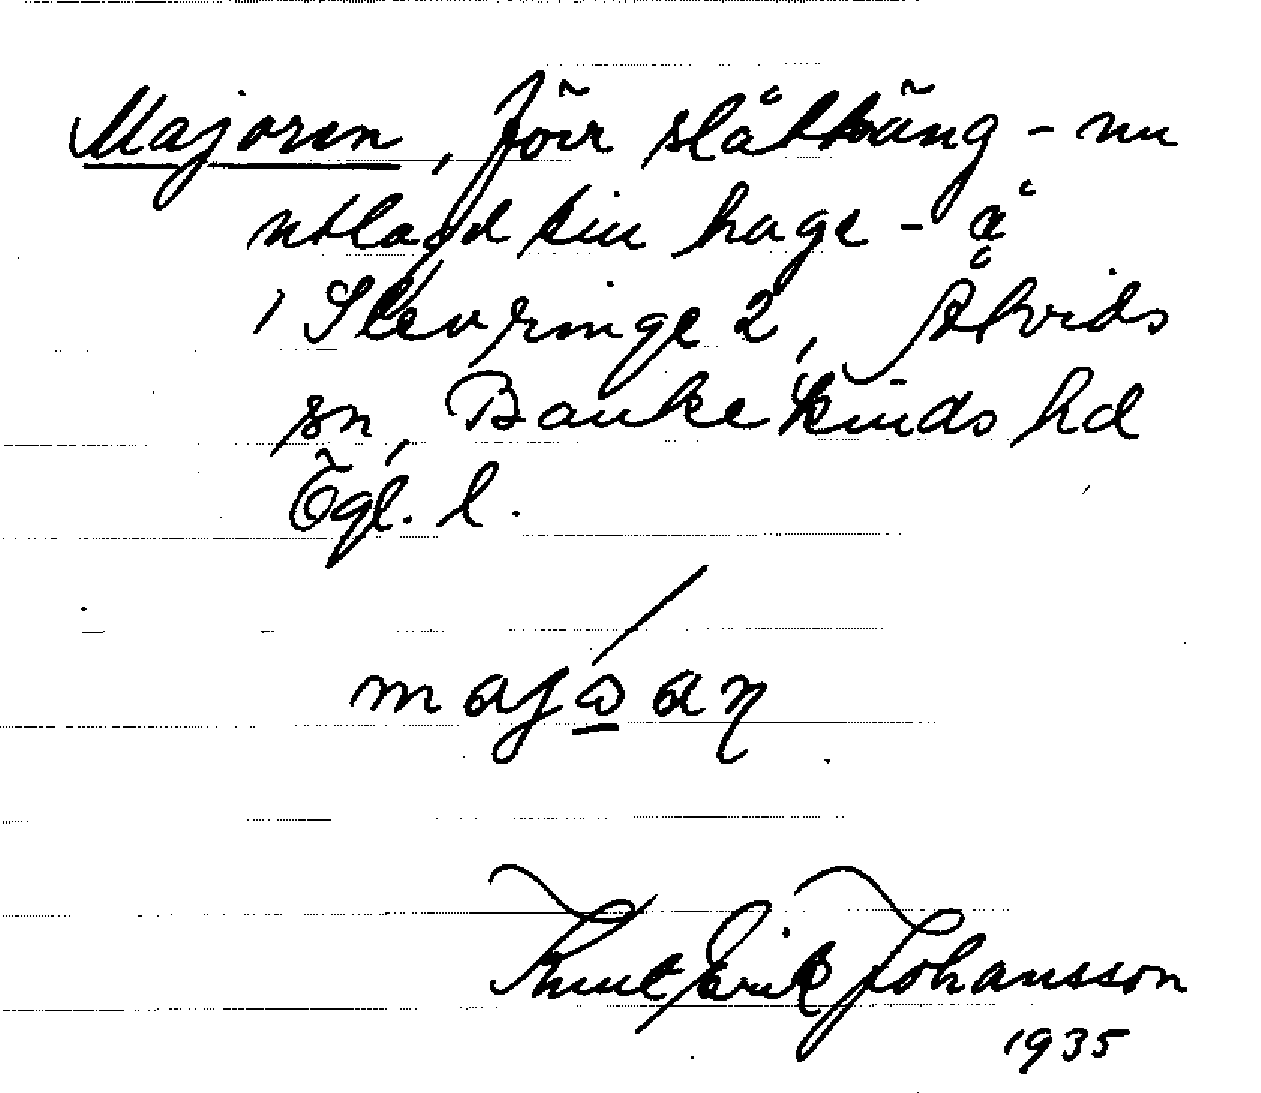 Majoren, förr slåttäng - nu
utlagd till hage - å
Stevringe 2, Åkvids
sn, Bankekinds hd
Ögl. l.
majoan
Knut Erik Johansson
1935